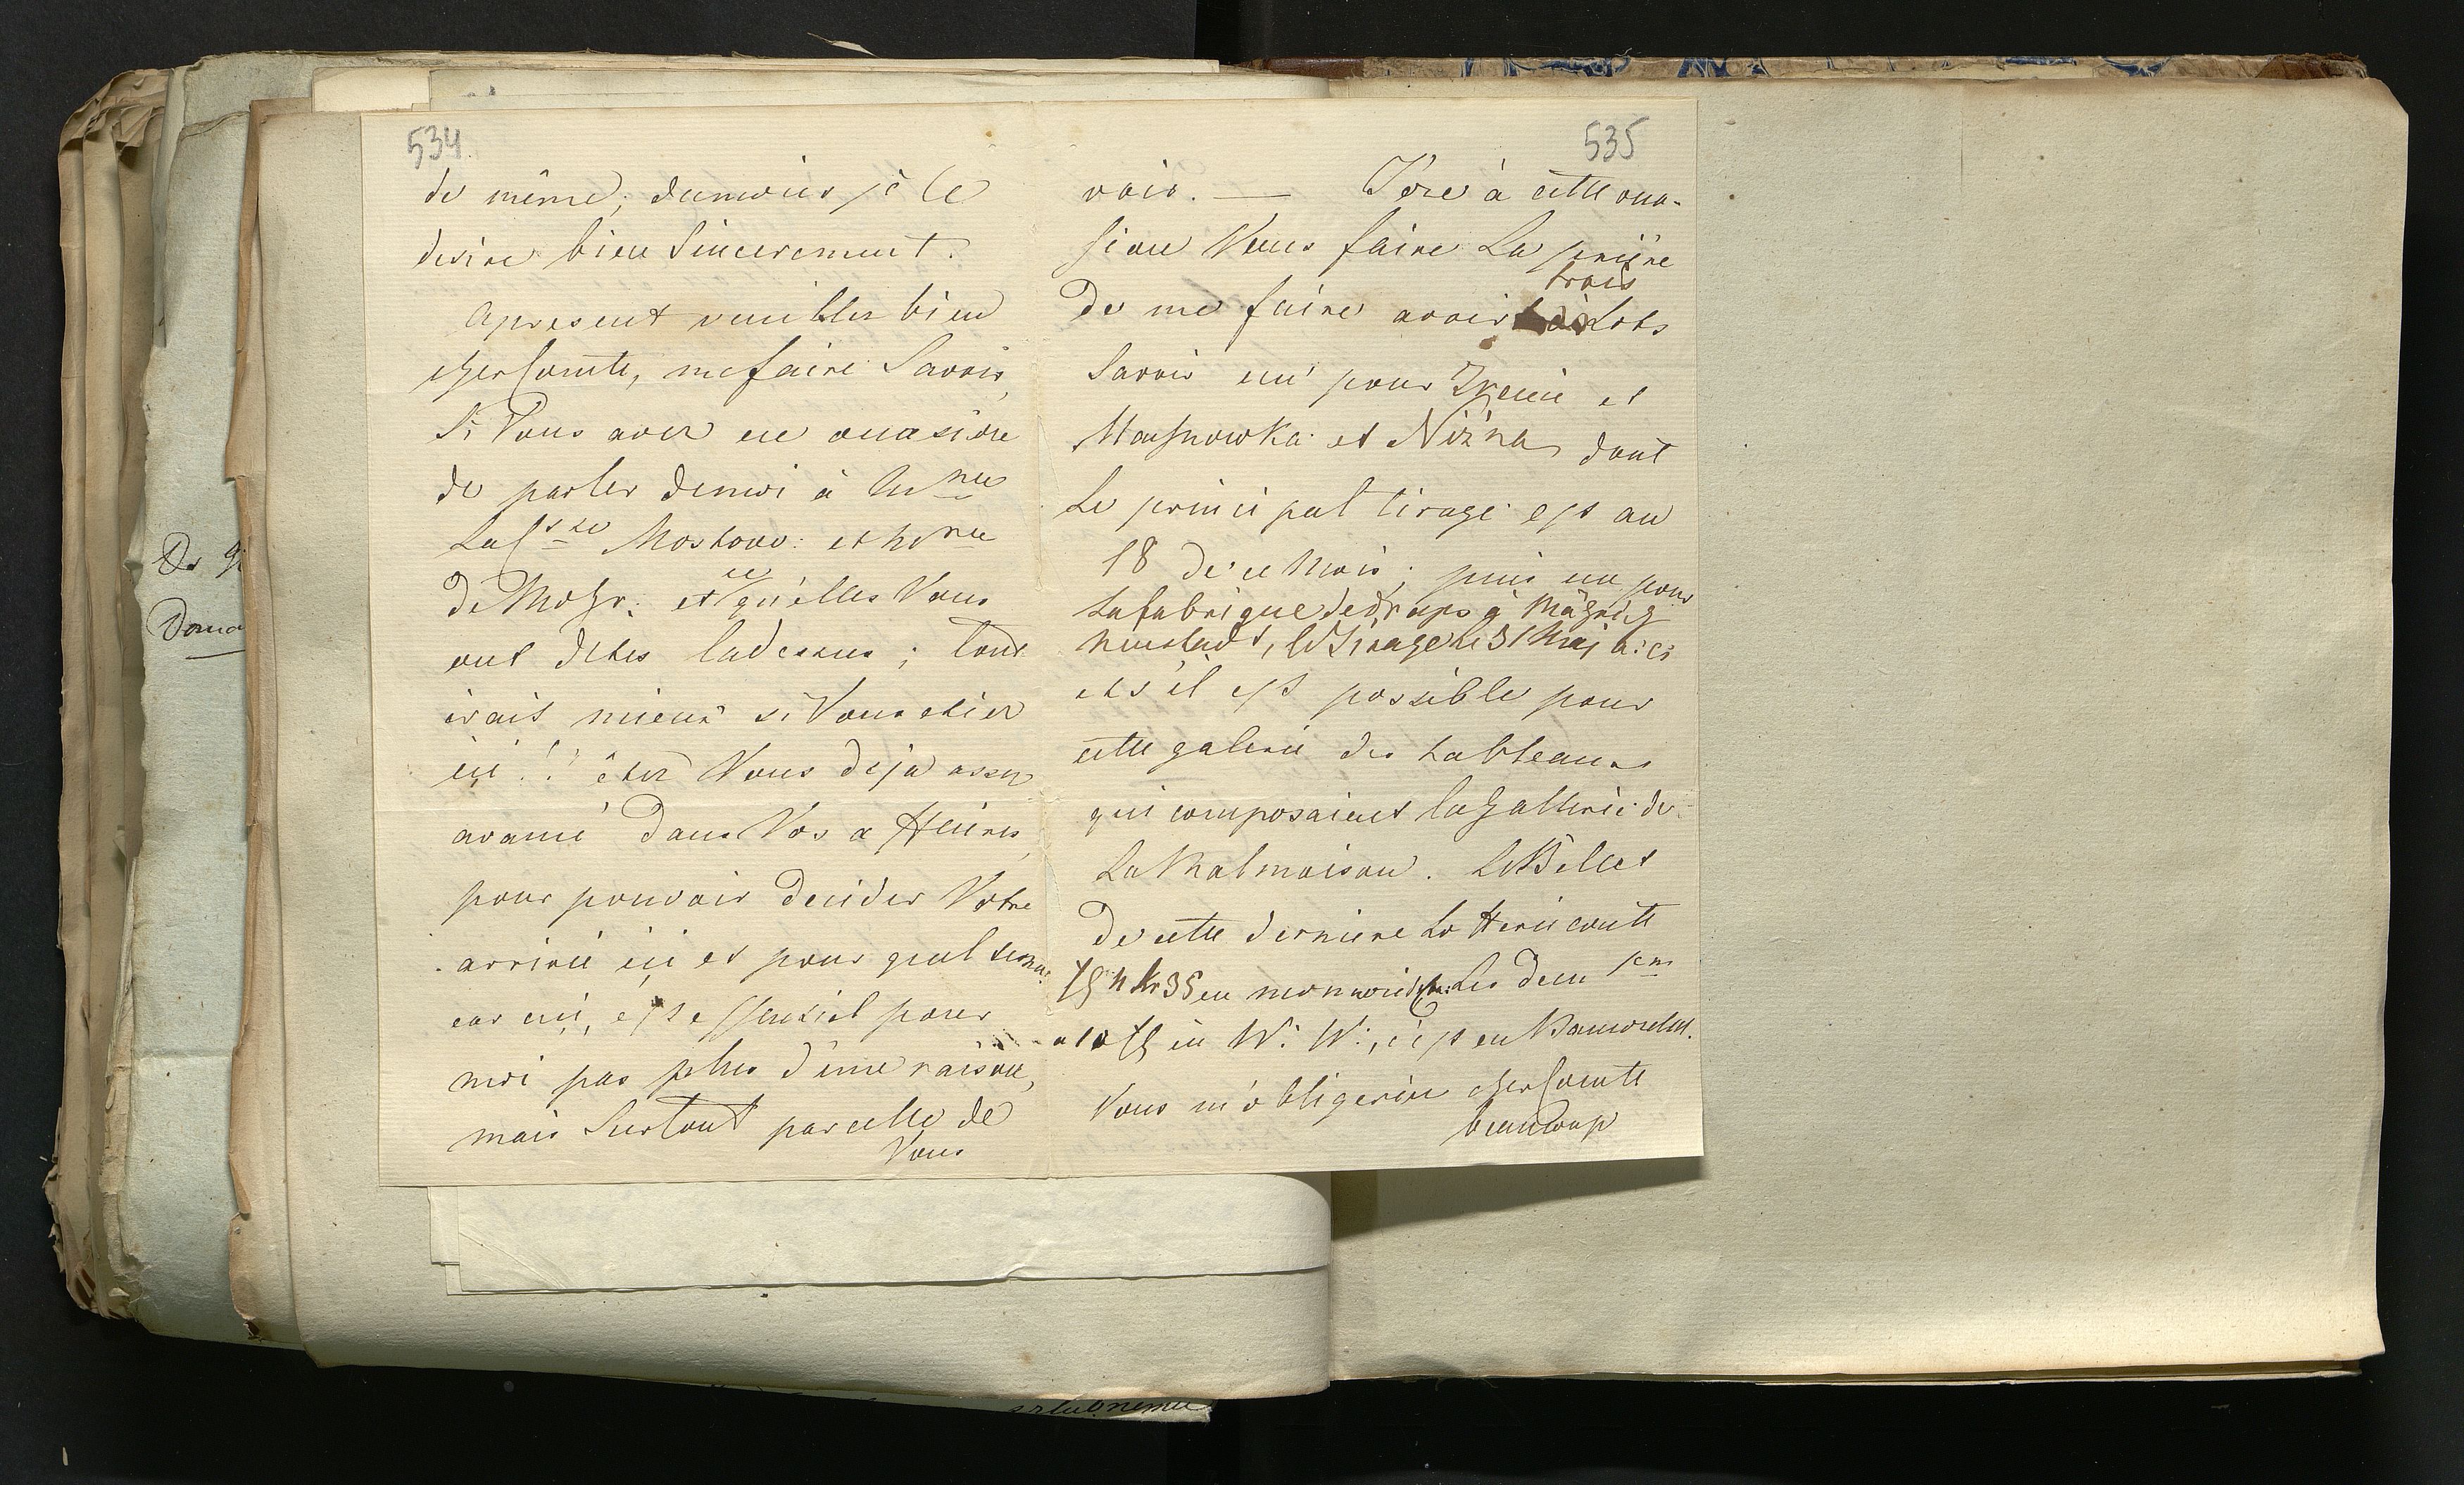 534
de même; dumoins je le
desire bien Sincerement.
Apresent veuilles bien
cher Comte, me faire Savoir,
Si Vous avez eu occasion
de parler demoi à Mme
La Csse Mostow: et Mme
De Mohr: et ce qu'elles Vous
ont dites ladessus; tout
irait mieux si Vous etiez
ici!! êtez Vous deja assez
avancé dans Vos affaires,
pour pouvoir decider Votre
arrivée ici et pour quel tems,
car ceci, est essentiel pour
moi pas plus d'une raison,
mais Surtout par celle de
Vous
535
voir. — J'ose à cette occa-
sion Vous faire La prière
trois
De me faire avoir Lots
Savoir un pour et
et Nizna dont
Le principal tirage est au
18 de ce Mois; puis un pour
La fabrique de draps à Mähr:
neustadt, le tirage le 31 Mai a: c:
et s'il est possible pour
cette galerie des tableaux
qui composaient la Gallerie de
La Malmaison. Le Billet
De cette derniere Lotterie coute
en monnoie Les deux
a 10 en W: W:, c'est en
Vous m'obligeriez cher Comte
beaucoup
Dona